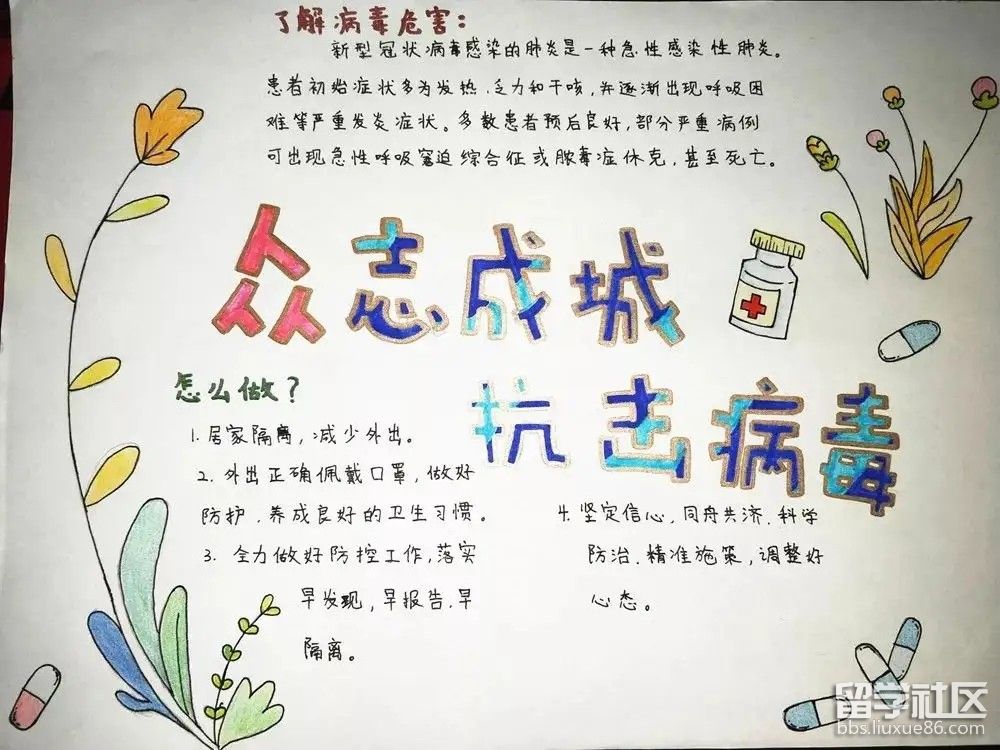 了解病毒危害：
新型冠状病毒感染的肺炎是一种急性感染性肺炎。
患者初始症状多为发热、乏力和干咳，并逐渐出现呼吸困
难等严重发炎症状。多数患者预后良好，部分严重病例
可出现急性呼吸窘迫综合征或脓毒症休克，甚至死亡。
众志成城
抗击病毒
怎么做？
1. 居家隔离，减少外出。
2. 外出正确佩戴口罩，做好
防护、养成良好的卫生习惯。
3. 全力做好防控工作，落实
早发现，早报告、早
隔离。
4. 坚定信心，同舟共济、科学
防治、精准施策，调整好
心态。
留学社区
bbs.liuxue86.com